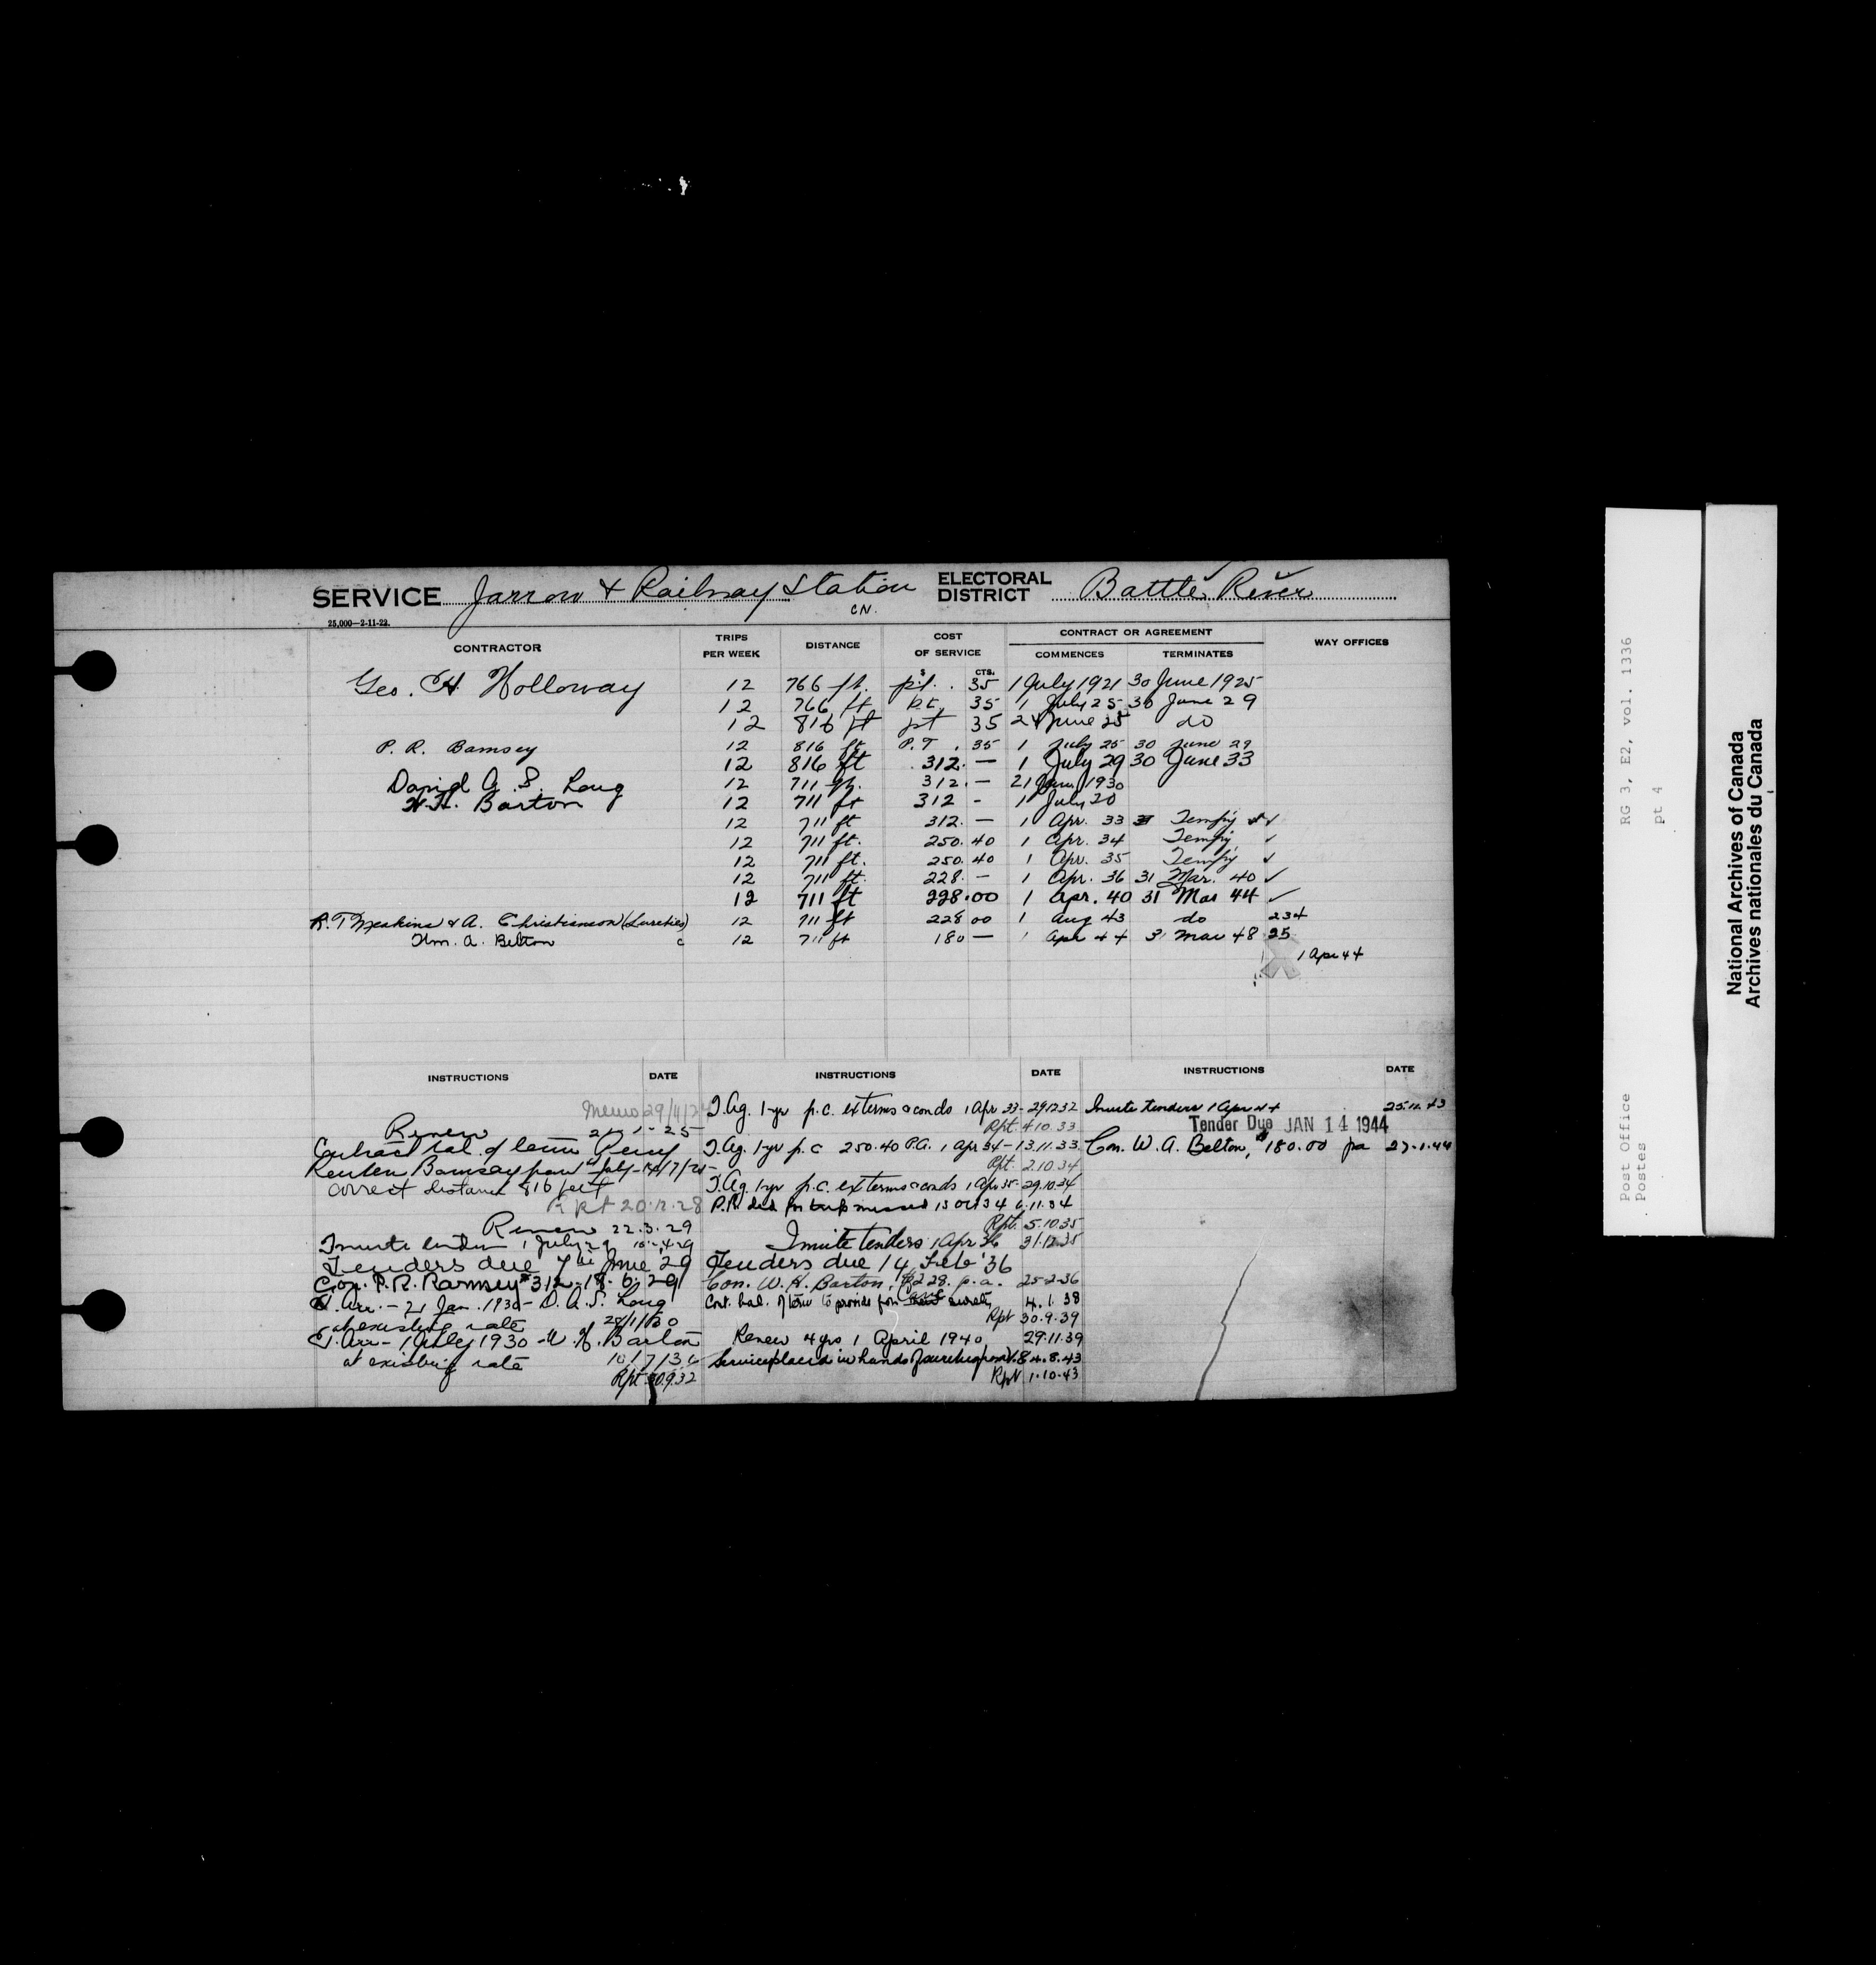 SERVICE Jarrow & Railway Station ELECTORAL DISTRICT Battle River
C.N.
25,000—2-11-22.
CONTRACTOR TRIPS PER WEEK DISTANCE COST OF SERVICE CONTRACT OR AGREEMENT WAY OFFICES
COMMENCES TERMINATES
$ CTS.
Geo. H. Holloway 12 766 ft. p.t. 35 1 July 1921 30 June 1925
12 766 ft p.t. 35 1 July 25 30 June 29
12 816 ft pt 35 24 June 25 do
P. R. Bamsey 12 816 ft P.T. 35 1 July 25 30 June 29
12 816 ft 312. — 1 July 29 30 June 33
David A. S. Long 12 711 ft. 312. — 21 Jan 1930
W.H. Barton 12 711 ft 312 - 1 July 30
12 711 ft 312. — 1 Apr. 33 Tempy ✓
12 711 ft. 250.40 1 Apr. 34 Tempy ✓
12 711 ft. 250.40 1 Apr. 35 Tempy ✓
12 711 ft. 228. — 1 Apr. 36 31 Mar. 40 ✓
12 711 ft 228.00 1 Apr. 40 31 Mar 44 ✓
R. T. Meakins & A. Christianson (Sureties) 12 711 ft 228 00 1 Aug 43 do 234
Wm. A. Belton c 12 711 ft 180 — 1 Apr 44 31 Mar 48 25
1 Apr 44
INSTRUCTIONS DATE INSTRUCTIONS DATE INSTRUCTIONS DATE
Memo 29/11/24
Renew 25
Contract bal. of term Percy
Reuben Bamsay from 1st July
correct distance 816 feet
Rpt 20.12.28
Renew 22.3.29
Invite tenders 1 July 29
Tenders due 7th June 29
Con. P.R. Ramsey $312 - 18.6.29
T. Arr. - 21 Jan. 1930 - D. A. S. Long
at existing rate
T. Arr - 1 July 1930 - W. H. Barton
at existing rate 10/7/30
Rpt 30.9.32
T. Ag. 1-yr p.c. ex terms & conds 1 Apr 33 - 29.12.32
Rpt. 4.10.33
T. Ag. 1-yr p.c 250.40 P.A. 1 Apr 34 - 13.11.33
Rpt. 2.10.34
T. Ag. 1-yr p.c. ex terms & conds 1 Apr 35 - 29.10.34
P.R. ded for trip missed 13 Oct 34 6.11.34
Rpt. 5.10.35
Invite tenders 1 Apr 36 31.12.35
Tenders due 14 Feb '36
Con. W. H. Barton, $228. p.a. 25-2-36
Cont. bal. of term to provide for surety 4.1.38
Rpt 30.9.39
Renew 4 yrs 1 April 1940 29.11.39
Service placed in hands of sureties from 1.8 4.8.43
Rpt 1.10.43
Invite tenders 1 Apr 44 25.11.43
Tender Due JAN 14 1944
Con. W. A. Belton, $180.00 pa 27.1.44
Post Office RG 3, E2, vol. 1336
Postes pt 4
National Archives of Canada
Archives nationales du Canada